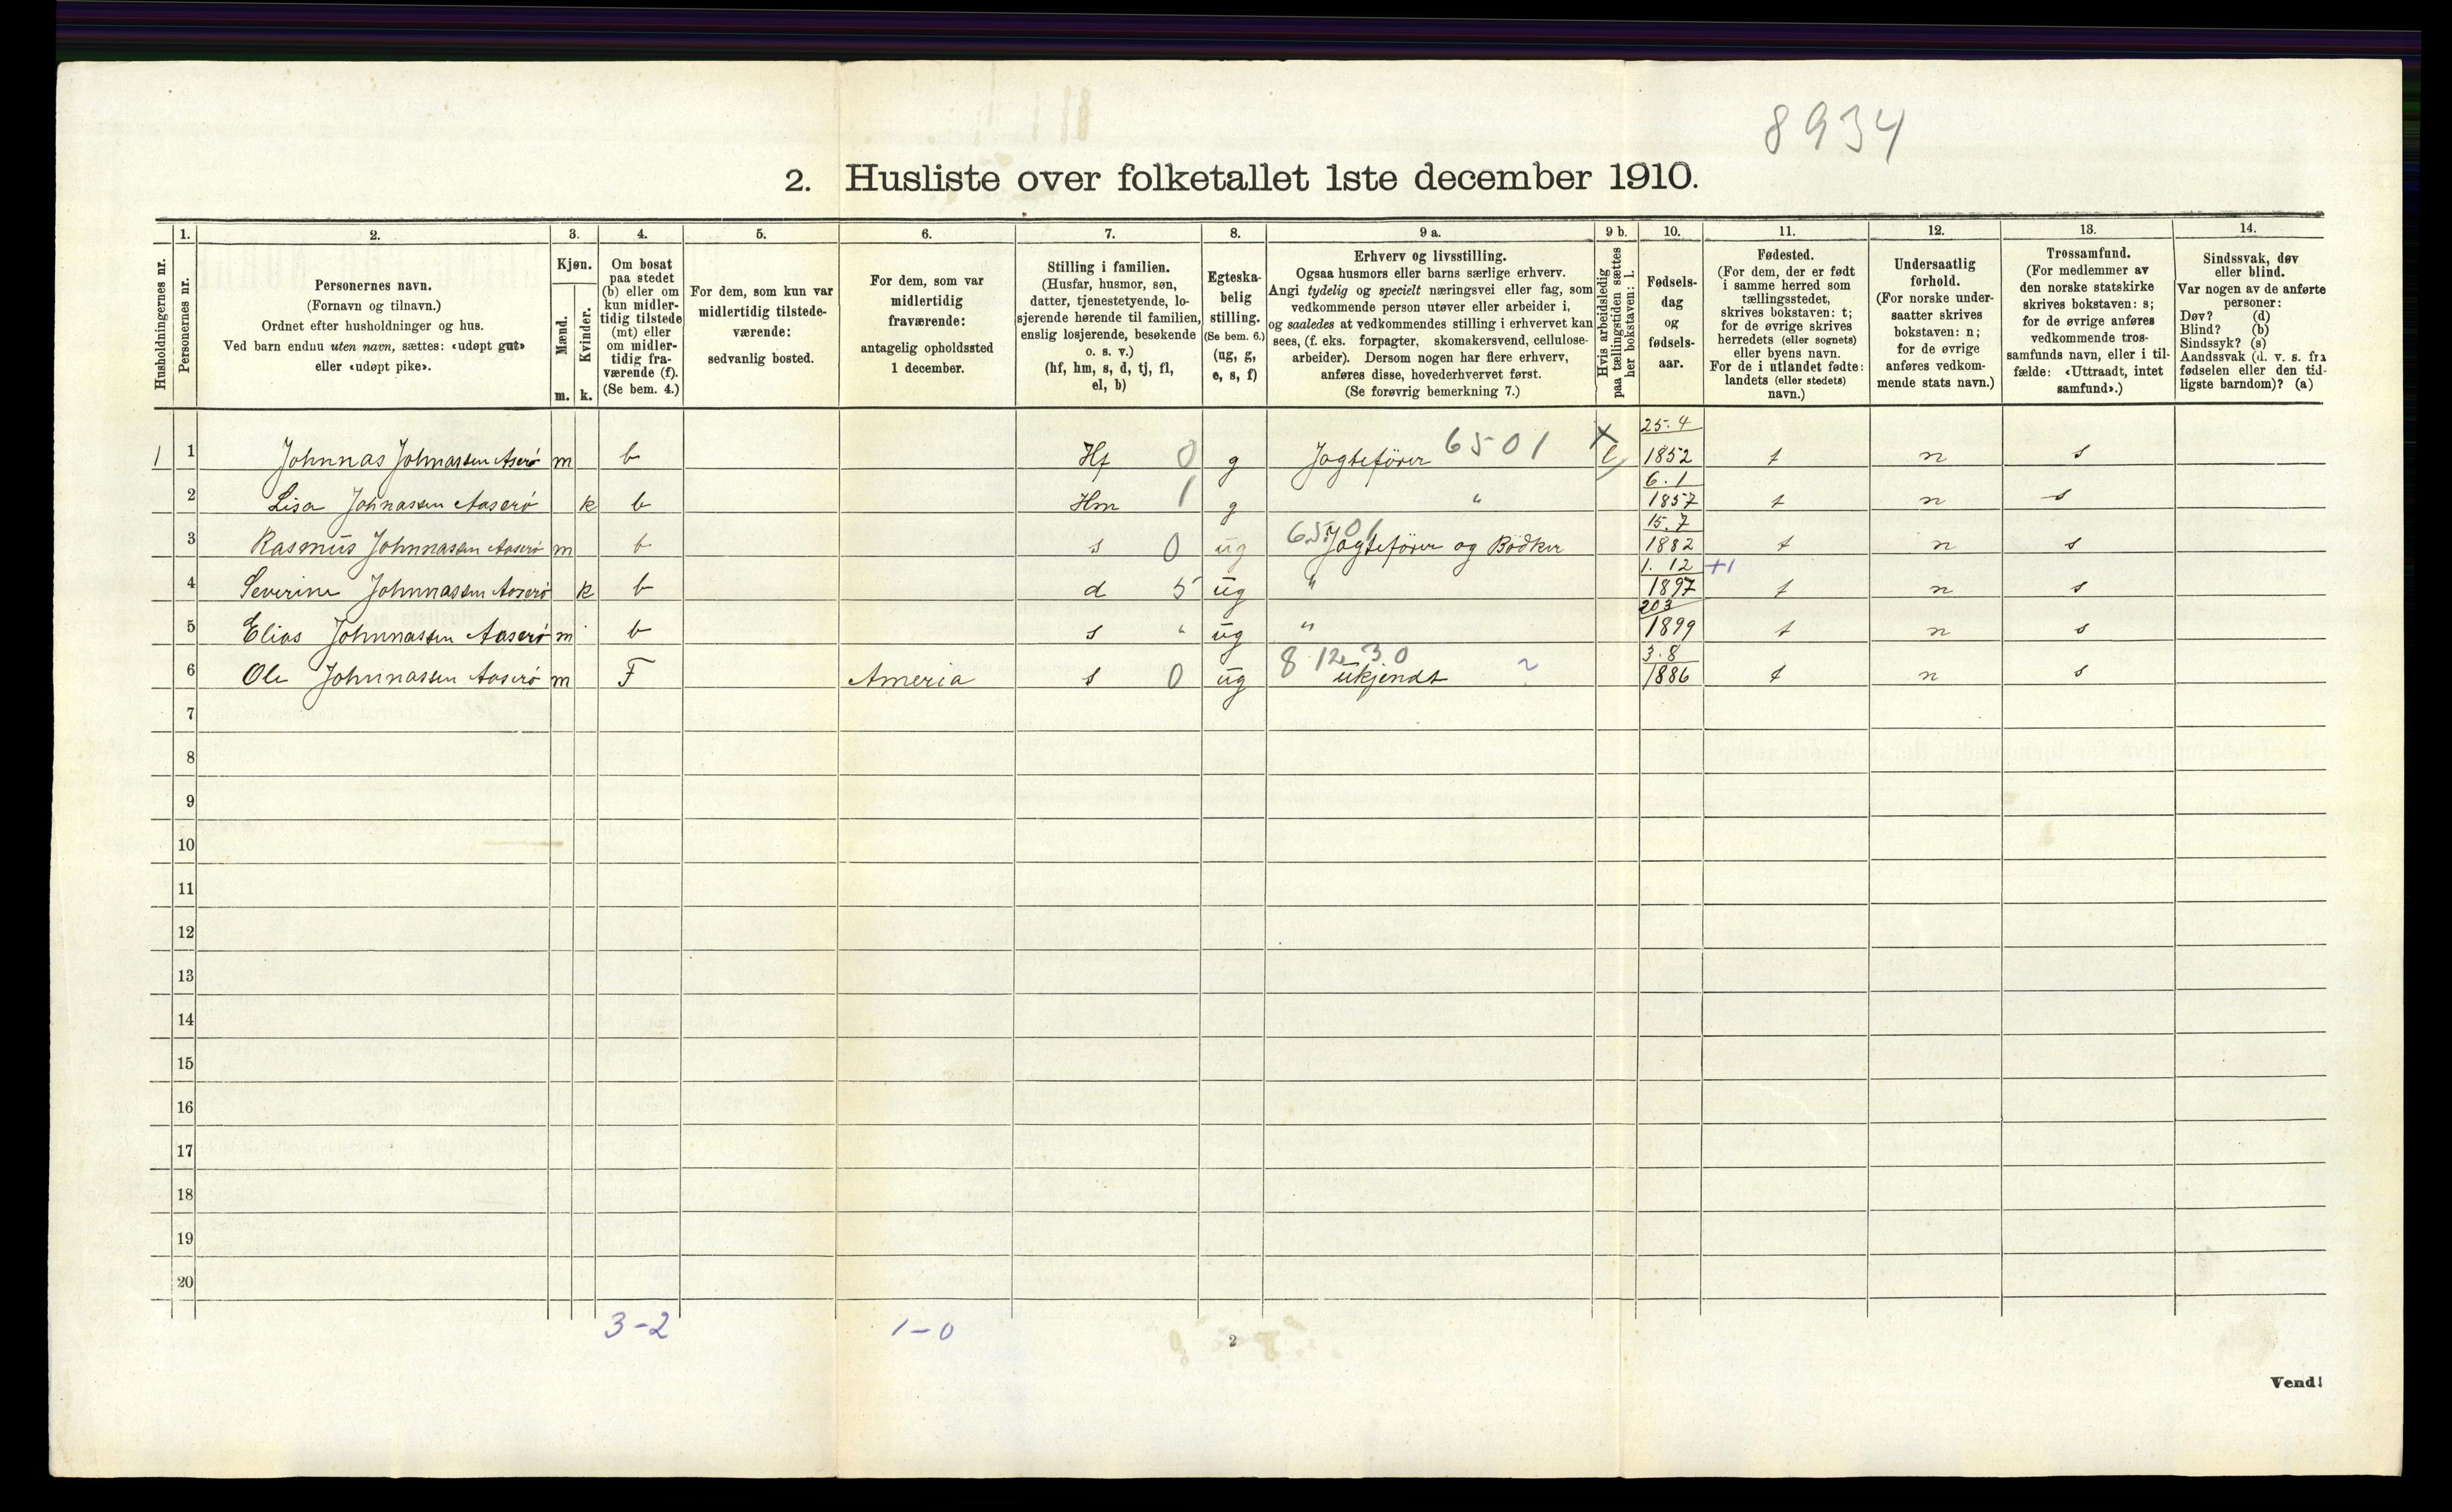 8934
2. Husliste over folketallet 1ste december 1910.
Husholdningernes nr.
1.
Personernes nr.
2.
Personernes navn.
(Fornavn og tilnavn.)
Ordnet efter husholdninger og hus.
Ved barn endnu uten navn, sættes: «udøpt gut»
eller «udøpt pike».
3.
Kjøn.
Mænd.
Kvinder.
m. k.
4.
Om bosat
paa stedet
(b) eller om
kun midler-
tidig tilstede
(mt) eller
om midler-
tidig fra-
værende (f).
(Se bem. 4.)
5.
For dem, som kun var
midlertidig tilstede-
værende:
sedvanlig bosted.
6.
For dem, som var
midlertidig
fraværende:
antagelig opholdssted
1 december.
7.
Stilling i familien.
(Husfar, husmor, søn,
datter, tjenestetyende, lo-
sjerende hørende til familien,
enslig losjerende, besøkende
o. s. v.)
(hf, hm, s, d, tj, fl,
el, b)
8.
Egteska-
belig
stilling.
(Se bem. 6.)
(ug, g,
e, s, f)
9 a.
Erhverv og livsstilling.
Ogsaa husmors eller barns særlige erhverv.
Angi tydelig og specielt næringsvei eller fag, som
vedkommende person utøver eller arbeider i,
og saaledes at vedkommendes stilling i erhvervet kan
sees, (f. eks. forpagter, skomakersvend, cellulose-
arbeider). Dersom nogen har flere erhverv,
anføres disse, hovederhvervet først.
(Se forøvrig bemerkning 7.)
9 b.
Hvis arbeidsledig
paa tællingstiden sættes
her bokstaven: l.
10.
Fødsels-
dag
og
fødsels-
aar.
11.
Fødested.
(For dem, der er født
i samme herred som
tællingsstedet,
skrives bokstaven: t;
for de øvrige skrives
herredets (eller sognets)
eller byens navn.
For de i utlandet fødte:
landets (eller stedets)
navn.)
12.
Undersaatlig
forhold.
(For norske under-
saatter skrives
bokstaven: n;
for de øvrige
anføres vedkom-
mende stats navn.)
13.
Trossamfund.
(For medlemmer av
den norske statskirke
skrives bokstaven: s;
for de øvrige anføres
vedkommende tros-
samfunds navn, eller i til-
fælde: «Uttraadt, intet
samfund».)
14.
Sindssvak, døv
eller blind.
Var nogen av de anførte
personer:
Døv? (d)
Blind? (b)
Sindssyk? (s)
Aandssvak (d. v. s. fra
fødselen eller den tid-
ligste barndom)? (a)
1 1 Johnnas Johnassen Aserø m b Hf 0 g Jagtefører 6501 X l 25.4 1852 t n s
2 Lisa Johnassen Aaserø k b Hm 1 g " 6.1 1857 t n s
3 Rasmus Johnnassen Aaserø m b s 0 ug 6501 Jagtefører og Bødker 15.7 1882 t n s
4 Severine Johnnassen Aaserø k b d 5 ug " 1.12 1897 +1 t n s
5 Elias Johnnassen Aaserø m b s " ug " 203 1899 t n s
6 Ole Johnnassen Aaserø m F Ameria s 0 ug 8 12 30 ukjendt 3.8 1886 t n s
7
8
9
10
11
12
13
14
15
16
17
18
19
20
3-2 1-0
2
Vend!